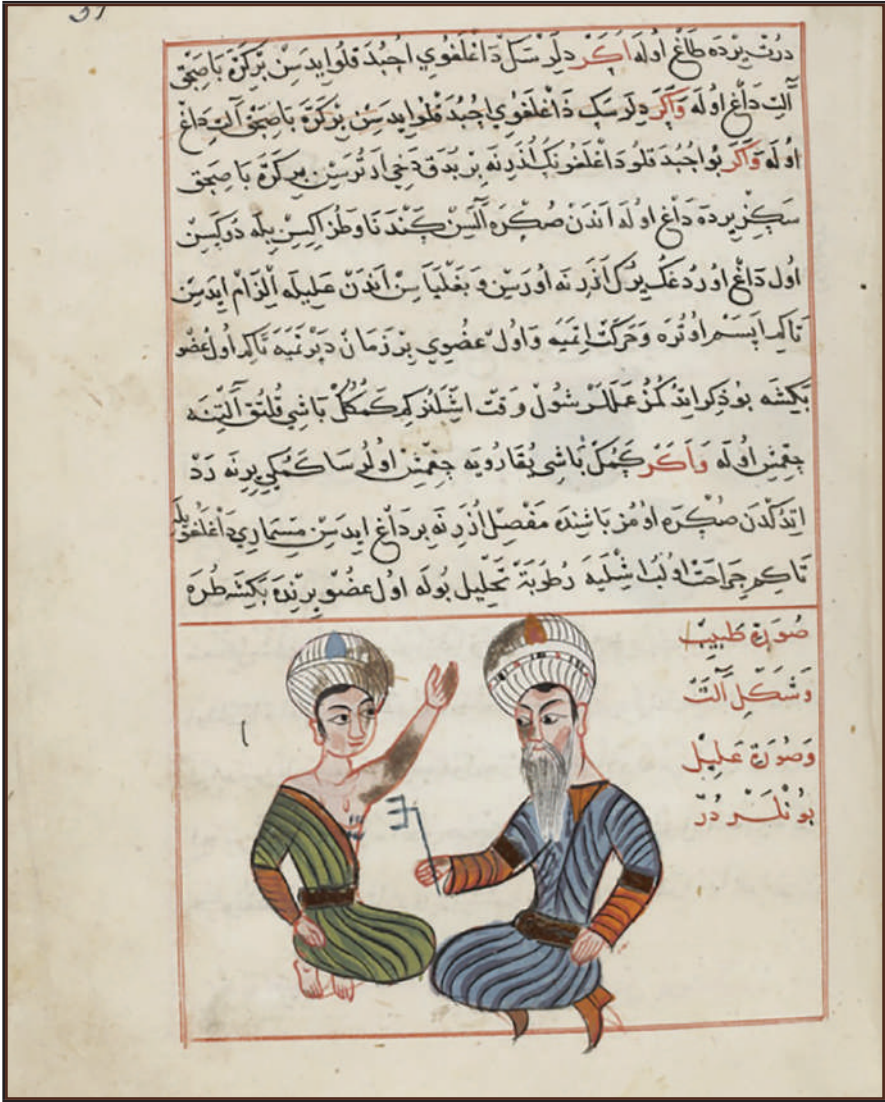 درت يرده طاغ اوله اكر دلرسك داغلغوي اجبدقلو ايدسن بركزه باصيجق
آلت داغ اوله واكر دلرسك داغلغوي اجبدقلو ايدسن بركزه باصيجق آلت داغ
اوله واكر بو اجبدقلو داغلغونك اذرنه بر بدق دخي ارترسن بركزه باصيجق
سكز يرده داغ اوله اندن صكره آلسن كندنا وطز اكسن بله دوكسن
اول داغ اوردغك يرك اذرنه اورسن وبغلياسن اندن عليله الزام ايدسن
تاكم اپسم اوتره وحركت اتميه واول عضوي بر زمان دپرتميه تاكم اول عضو
بكيشه بو ذكر اتدكمز عمللر شول وقت اشلنر كم كمكك باشي قلتق آلتنه
جقمش اوله واكر كمكك باشي يقارويه جقمش اولرسا كمكي يرنه رد
اتدكدن صكره اومز باشنده مفصل اذرنه بر داغ ايدسن مسماري داغلغو بله
تاكم جراحت اولب اشليه رطوبة تحليل بوله اول عضو يرنده بكشه طره
صورة طبيب
وشكل آلت
وصورة عليل
بونلر در